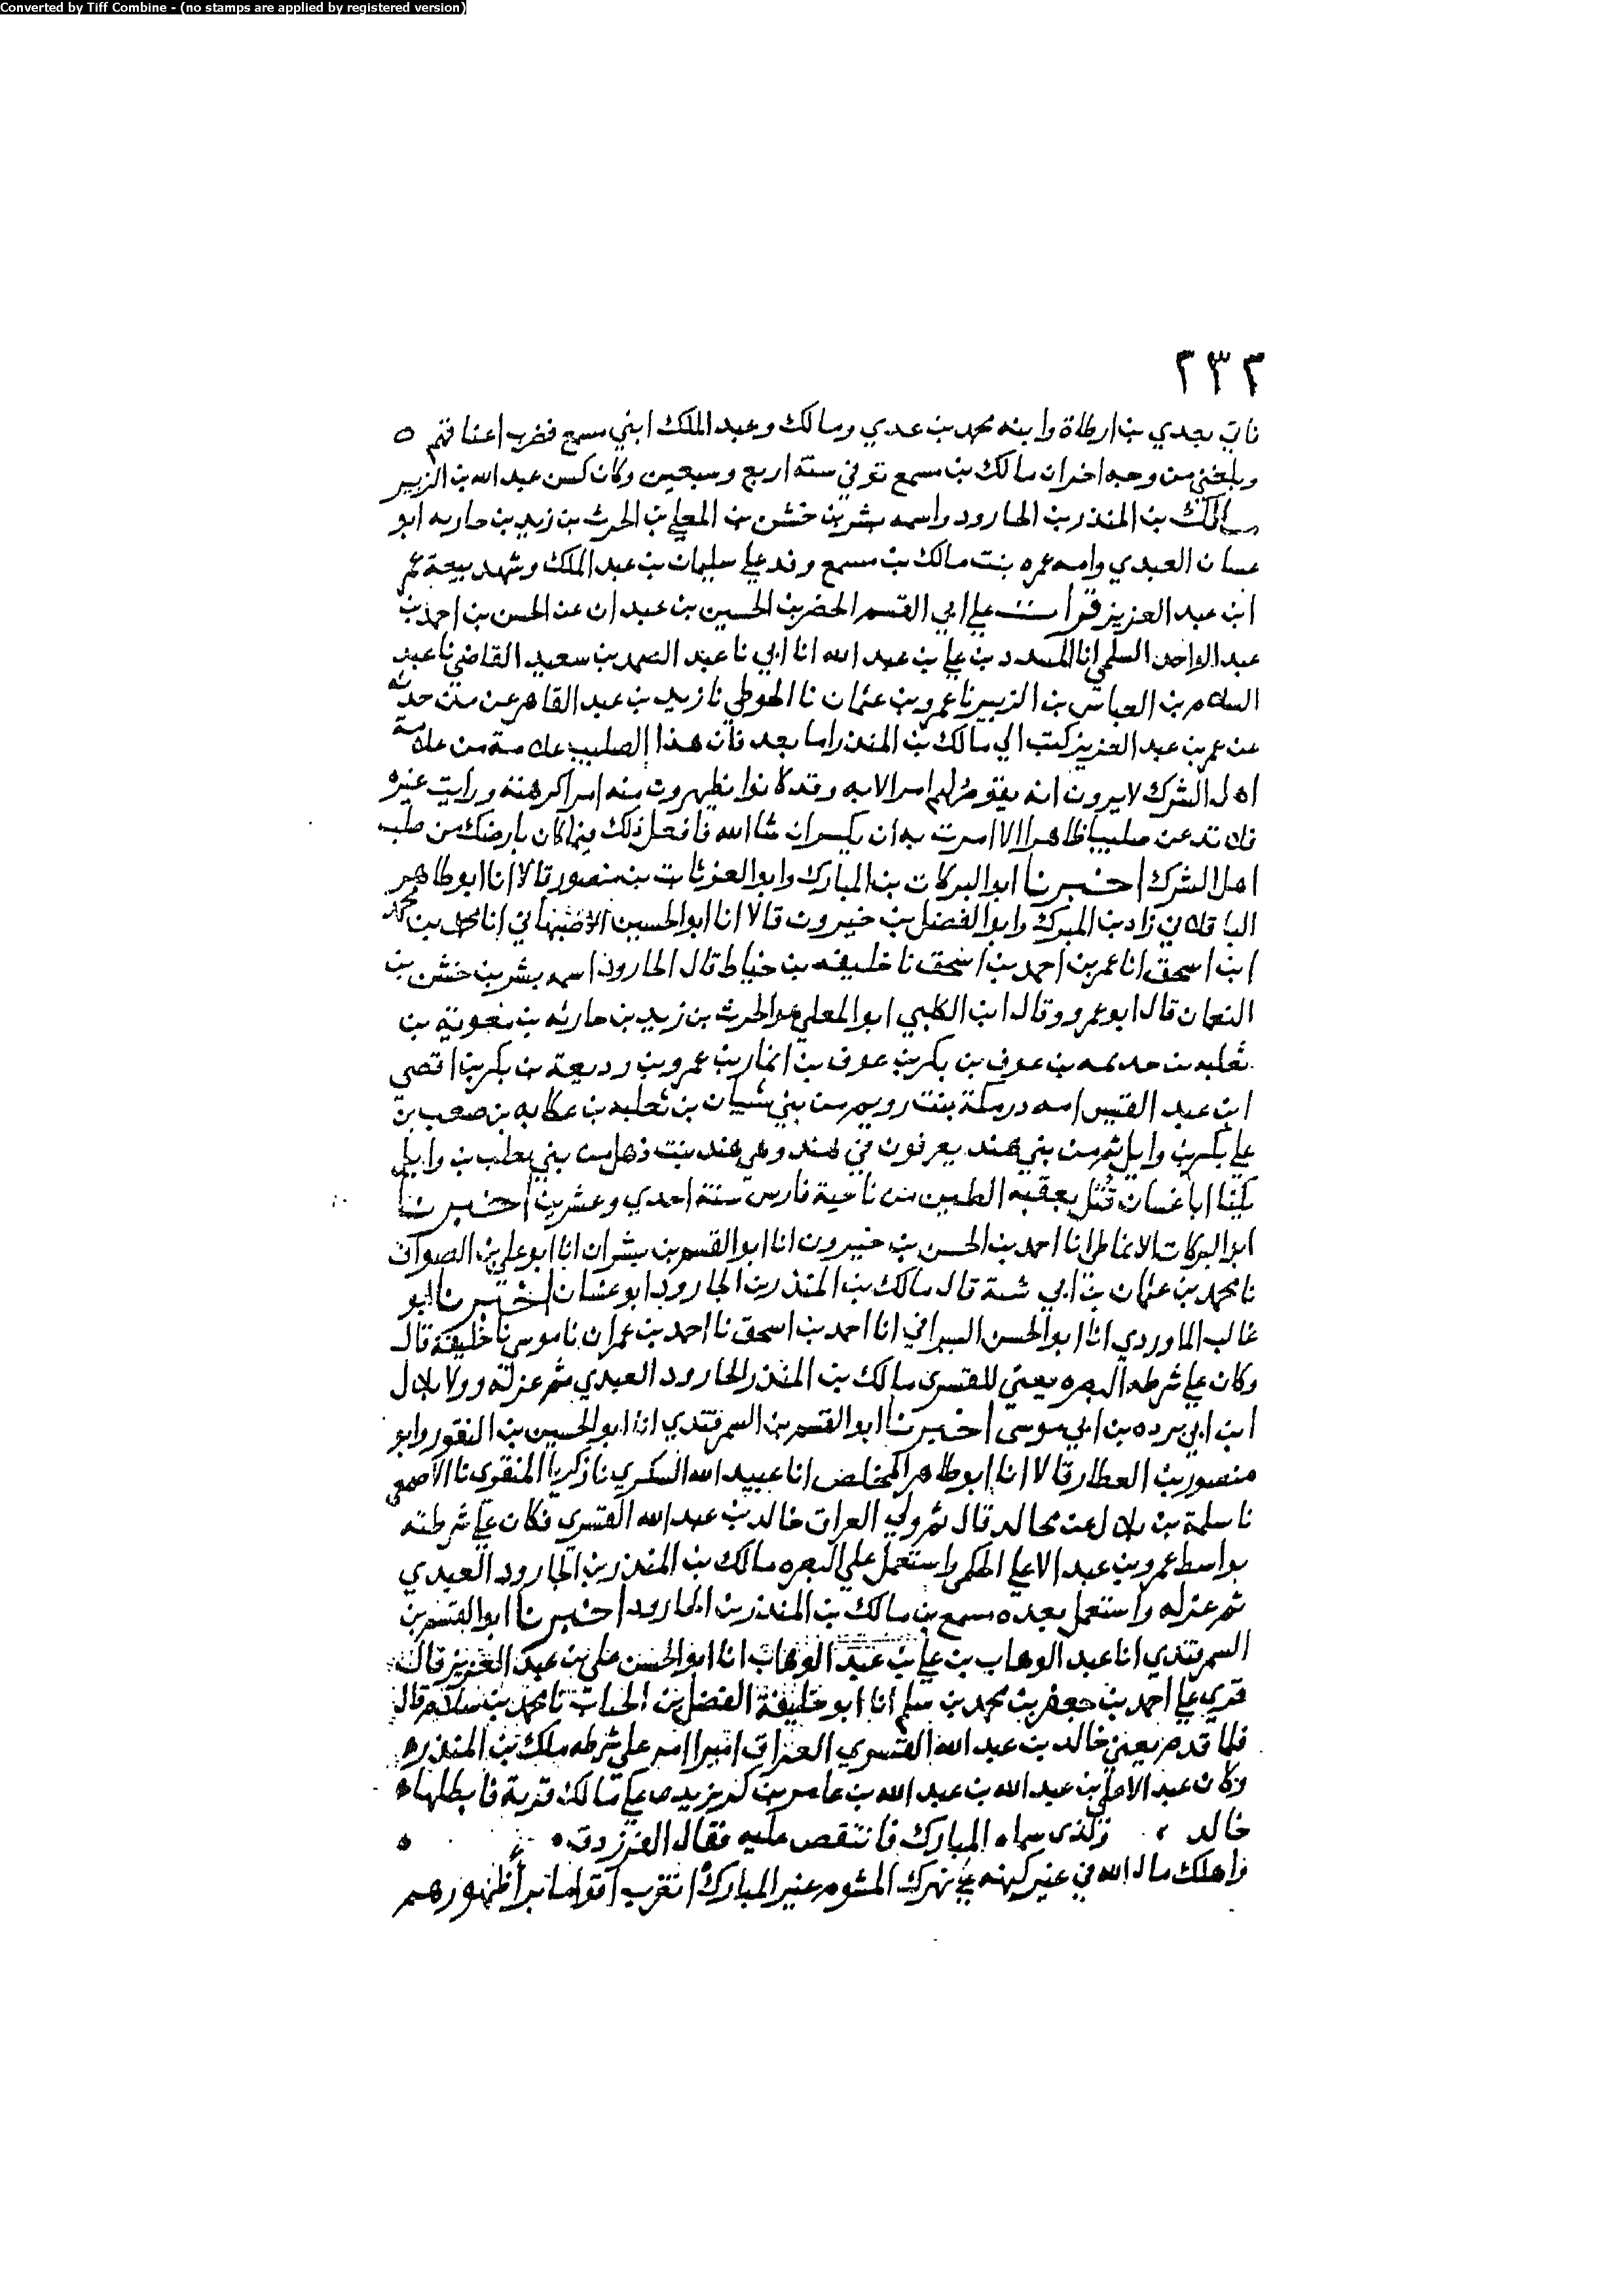 Converted by Tiff Combine - (no stamps are applied by registered version)
٢٣٢
فاتي بعدي بن ارطاة وابنه محمد بن عدي ومالك وعبد الملك ابني مسمع فضرب اعناقهم ه
وبلغني من وجه اخر ان مالك بن مسمع توفي سنة اربع وسبعين وكان كسن عبد الله بن الزبير
مالك بن المنذر بن الجارود واسمه بشر بن خنش بن المعلي بن الحرث بن زيد بن حارثه ابو
غسان العبدي وامه عمره بنت مالك بن مسمع وفد علي سليمان بن عبد الملك وشهد بيعة عمر
ابن عبد العزيز قرأت علي ابي القسم الخضر بن الحسين بن عبدان عن الحسن بن احمد بن
عبد الواحد السلمي انا المسدد بن علي بن عبد الله انا ابي نا عبد الصمد بن سعيد القاضي نا عبد
السلام بن العباس بن الزبير نا عمرو بن عثمان نا الحوطي نا زيد بن عبد القاهر عن من حدثه
عن عمر بن عبد العزيز كتب الي مالك بن المنذر اما بعد فان هذا الصليب علامة من علامة
اهل الشرك لا يرون انه يقوم لهم امر الا به وقد كانوا يظهرون منه امرا كرهته ورايت غيره
فلا تدعن صليبا ظاهرا الا امرت به ان يكسر ان شا الله فافعل ذلك فيما كان بارضك من صلب
اهل الشرك اخبرنا ابو البركات بن المبارك وابو العز ثابت بن منصور قالا انا ابو طاهر
الباقلاني زاد بن المبرك وابو الفضل بن خيرون قالا انا ابو الحسين الاصبهاني انا محمد بن
ابن اسحق انا عمر بن احمد بن اسحق نا خليفه بن خياط قال الجارود اسمه بشر بن خنش بن
النعمان قال ابو عمرو وقال ابن الكلبي ابو المعلي هو الحرث بن زيد بن حارثه بن معوية بن
ثعلبه بن جديمه بن عوف بن بكر بن عوف بن انمار بن عمرو بن وديعة بن بكر بن اقصي
ابن عبد القيس امه درمكة بنت رويم من بني شيبان بن ثعلبه بن عكابه بن صعب بن
علي بكر بن وايل ثم من بني هند يعرفون في هند وهي هند بنت ذهل من بني تغلب بن وايل
يكنا ابا غسان قتل بعقبه الطين من ناحية فارس سنة احدي وعشرين اخبرنا
ابو البركات الانماطي انا احمد بن الحسن بن خيرون انا ابو القسم بن بشران انا ابو علي بن الصواف
نا محمد بن عثمان بن ابي شيبة قال مالك بن المنذر بن الجارود ابو غسان اخبرنا ابو
غالب الماوردي انا ابو الحسن السيرافي انا احمد بن اسحق نا احمد بن عمران نا موسي نا خليفة قال
وكان علي شرطه البصره يعني للقسرى مالك بن المنذر الجارود العبدي ثم عزله وولا بلال
ابن ابي برده بن ابي موسى اخبرنا ابو القسم بن السمرقندي انا ابو الحسين بن النقور وابو
منصور بن العطار قالا انا ابو طاهر المخلص انا عبيد الله السكري نا زكريا المنقرى نا الاصمعي
نا سلمة بن بلال عن مجالد قال ثم ولي العراق خالد بن عبد الله القسرى فكان علي شرطته
بواسط عمرو بن عبد الاعلي الحكمي واستعمل علي البصره مالك بن المنذر بن الجارود العبدي
ثم عزله واستعمل بعده مسمع بن مالك بن المنذر بن الجارود اخبرنا ابو القسم بن
السمرقندي انا عبد الوهاب بن علي بن عبد الوهاب انا ابو الحسن علي بن عبد العزيز قال
قرى علي احمد بن جعفر بن محمد بن سلم انا ابو خليفة الفضل بن الحباب نا محمد بن سلام قال
فلما قدم يعني خالد بن عبد الله القسري العراق اميرا امر علي شرطه ملك بن المنذر ه
وكان عبد الاعلي بن عبد الله بن عبد الله بن عامر بن كريز يدعي علي مالك قرية فابطلها ه
خالد وكذى سماه المبارك فانتقص عليه فقال الفرزدق ه ه
واهلك مال الله في غير كنهه علي نهرك المشوم غير المبارك اتضرب اقواما برأ ظهورهم